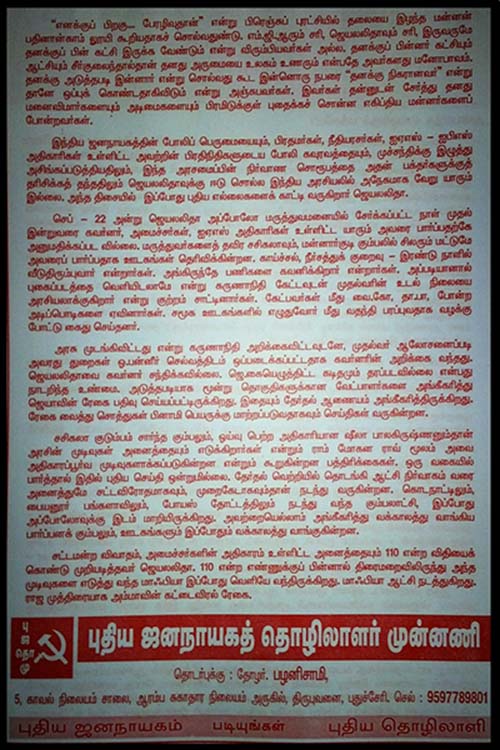 "எனக்குப் பிறகு... பேரழிவுதான்" என்று பிரெஞ்சுப் புரட்சியில் தலையை இழந்த மன்னன்
பதினான்காம் லூயி கூறியதாகச் சொல்வதுண்டு. எம்.ஜி.ஆரும் சரி, ஜெயலலிதாவும் சரி, இருவருமே
தனக்குப் பின் கட்சி இருக்க வேண்டும் என்று விரும்பியவர்கள் அல்ல. தனக்குப் பின்னர் கட்சியும்
ஆட்சியும் சீர்குலைந்தால்தான் தனது அருமையை உலகம் உணரும் என்பதே அவர்களது மனோபாவம்.
தனக்கு அடுத்தபடி இன்னார் என்று சொல்வது கூட இன்னொரு நபரை "தனக்கு நிகரானவர்" என்று
தானே ஒப்புக் கொண்டதாகிவிடும் என்று அஞ்சுபவர்கள். இவர்கள் தன்னுடன் சேர்த்து தனது
மனைவிமார்களையும் அடிமைகளையும் பிரமிடுக்குள் புதைக்கச் சொன்ன எகிப்திய மன்னர்களைப்
போன்றவர்கள்.
இந்திய ஜனநாயகத்தின் போலிப் பெருமையையும், பிரதமர்கள், நீதியரசர்கள், ஐஏஎஸ் – ஐபிஎஸ்
அதிகாரிகள் உள்ளிட்ட அவற்றின் பிரதிநிதிகளுடைய போலி கவுரவத்தையும், முச்சந்திக்கு இழுத்து
அசிங்கப்படுத்தியதிலும், இந்த அரசமைப்பின் நிர்வாண சொரூபத்தை அதன் பக்தர்களுக்குத்
தரிசிக்கத் தந்ததிலும் ஜெயலலிதாவுக்கு ஈடு சொல்ல இந்திய அரசியலில் அநேகமாக வேறு யாரும்
இல்லை. அந்த திசையில் இப்போது புதிய எல்லைகளைக் காட்டி வருகிறார் ஜெயலலிதா.
செப் – 22 அன்று ஜெயலலிதா அப்போலோ மருத்துவமனையில் சேர்க்கப்பட்ட நாள் முதல்
இன்றுவரை கவர்னர், அமைச்சர்கள், ஐஏஎஸ் அதிகாரிகள் உள்ளிட்ட யாரும் அவரை பார்ப்பதற்கே
அனுமதிக்கப்பட வில்லை. மருத்துவர்களைத் தவிர சசிகலாவும், மன்னார்குடி கும்பலில் சிலரும் மட்டுமே
அவரைப் பார்ப்பதாக ஊடகங்கள் தெரிவிக்கின்றன. காய்ச்சல், நீர்ச்சத்துக் குறைவு – இரண்டு நாளில்
வீடுதிரும்புவார் என்றார்கள். அங்கிருந்தே பணிகளை கவனிக்கிறார் என்றார்கள். அப்படியானால்
புகைப்படத்தை வெளியிடலாமே என்று கருணாநிதி கேட்டவுடன் முதல்வரின் உடல் நிலையை
அரசியலாக்குகிறார் என்று குற்றம் சாட்டினார்கள். கேட்பவர்கள் மீது வை.கோ, தா.பா, போன்ற
அடிப்பொடிகளை ஏவினார்கள். சமூக ஊடகங்களில் எழுதுவோர் மீது வதந்தி பரப்புவதாக வழக்கு
போட்டு கைது செய்தனர்.
அரசு முடங்கிவிட்டது என்று கருணாநிதி அறிக்கைவிட்டவுடனே, முதல்வர் ஆலோசனைப்படி
அவரது துறைகள் ஓ.பன்னீர் செல்வத்திடம் ஒப்படைக்கப்பட்டதாக கவர்னரின் அறிக்கை வந்தது.
ஜெயலலிதாவை கவர்னர் சந்திக்கவில்லை. ஜெ.கையெழுத்திட்ட கடிதமும் தரப்படவில்லை என்பது
நாடறிந்த உண்மை. அடுத்தபடியாக மூன்று தொகுதிகளுக்கான வேட்பாளர்களை அங்கீகரித்து
ஜெயாவின் ரேகை பதிவு செய்யப்பட்டிருக்கிறது. இதையும் தேர்தல் ஆணையம் அங்கீகரித்திருக்கிறது.
ரேகை வைத்து சொத்துகள் பினாமி பெயருக்கு மாற்றப்படுவதாகவும் செய்திகள் வருகின்றன.
சசிகலா குடும்பம் சார்ந்த கும்பலும், ஓய்வு பெற்ற அதிகாரியான ஷீலா பாலகிருஷ்ணனும்தான்
அரசின் முடிவுகள் அனைத்தையும் எடுக்கிறார்கள் என்றும் ராம் மோகன ராவ் மூலம் அவை
அதிகாரப்பூர்வ முடிவுகளாக்கப்படுகின்றன என்றும் கூறுகின்றன பத்திரிக்கைகள். ஒரு வகையில்
பார்த்தால் இதில் புதிய செய்தி ஒன்றுமில்லை. தேர்தல் வெற்றியில் தொடங்கி ஆட்சி நிர்வாகம் வரை
அனைத்துமே சட்டவிரோதமாகவும், முறைகேடாகவும்தான் நடந்து வருகின்றன. கொடநாட்டிலும்,
பையனூர் பங்களாவிலும், போயஸ் தோட்டத்திலும் நடந்து வந்த கும்பலாட்சி, இப்போது
அப்போலோவுக்கு இடம் மாறியிருக்கிறது. அவற்றையெல்லாம் அங்கீகரித்து வக்காலத்து வாங்கிய
பார்ப்பனக் கும்பலும், ஊடகங்களும் இப்போதும் வக்காலத்து வாங்குகின்றன.
சட்டமன்ற விவாதம், அமைச்சர்களின் அதிகாரம் உள்ளிட்ட அனைத்தையும் 110 என்ற விதியைக்
கொண்டு முறியடித்தவர் ஜெயலலிதா. 110 என்ற எண்ணுக்குப் பின்னால் திரைமறைவிலிருந்து அந்த
முடிவுகளை எடுத்து வந்த மாஃபியா இப்போது வெளியே வந்திருக்கிறது. மாஃபியா ஆட்சி நடத்துகிறது.
ராஜ முத்திரையாக அம்மாவின் கட்டைவிரல் ரேகை.
பு
ஜ
தொ
மு
புதிய ஜனநாயகத் தொழிலாளர் முன்னணி
தொடர்புக்கு : தோழர். பழனிசாமி,
5, காவல் நிலையம் சாலை, ஆரம்ப சுகாதார நிலையம் அருகில், திருபுவனை, புதுச்சேரி. செல் : 9597789801
புதிய ஜனநாயகம் படியுங்கள் புதிய தொழிலாளி